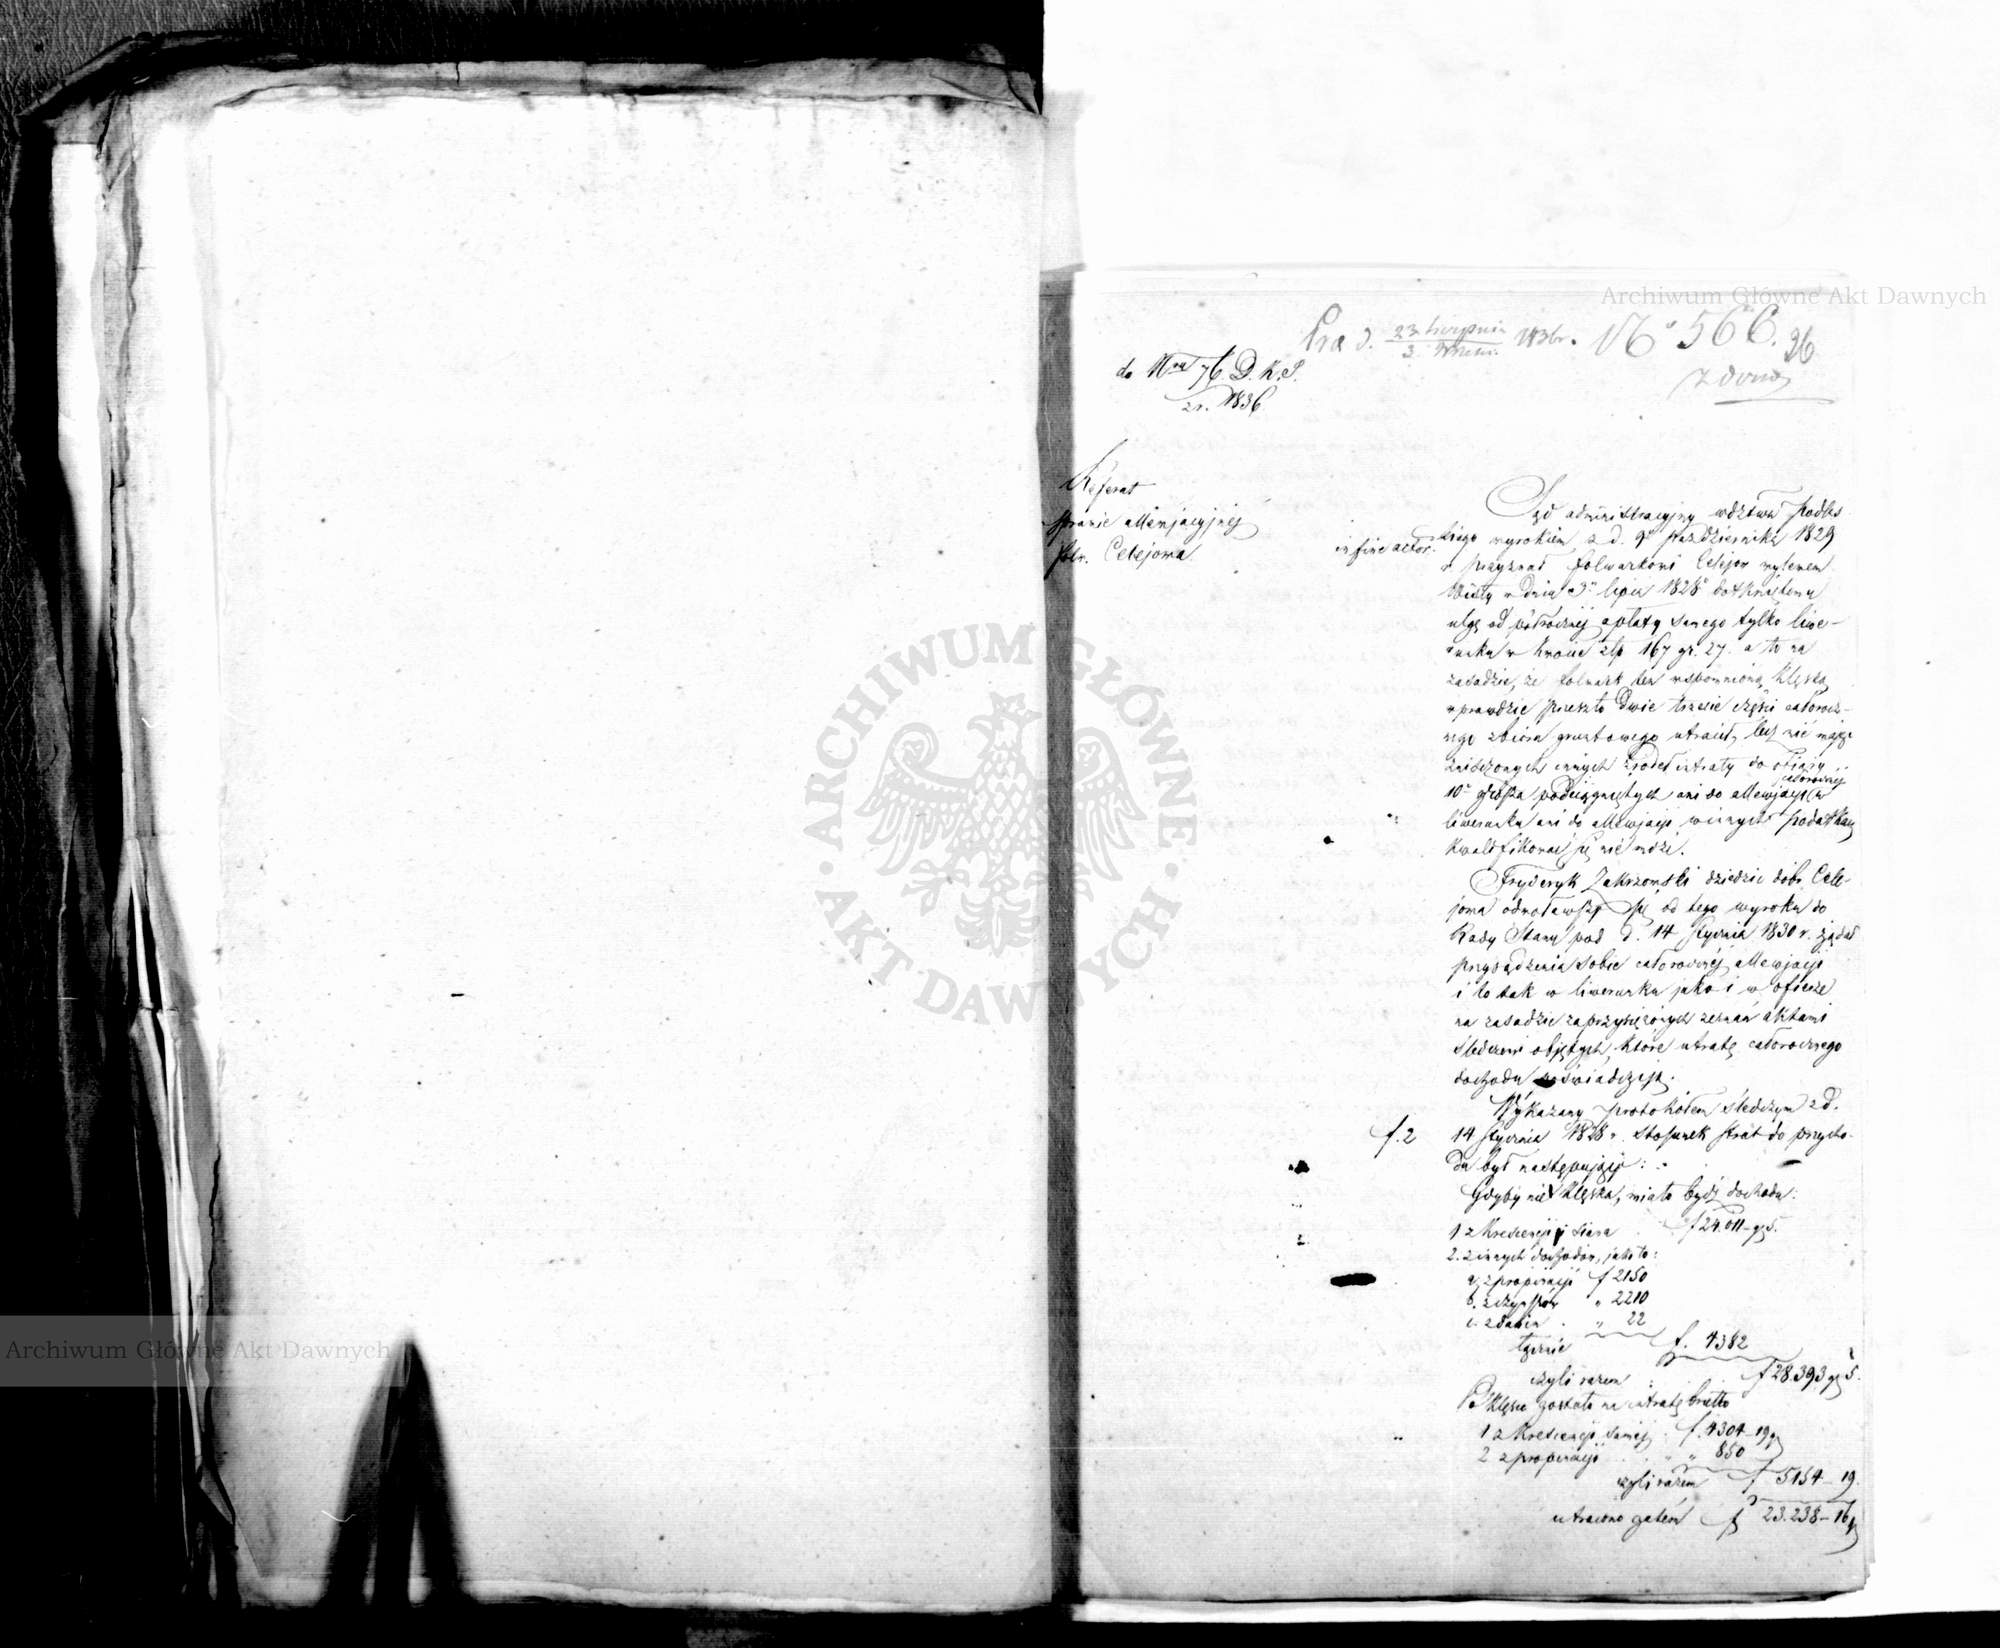 Archiwum Główne Akt Dawnych
Prae d. 23 Sierpnia / 3. Wrześn. 1836r. No 566. 36
do Nru 76 D.K.S.
z r. 1836
Referat
sprawie allewjacyjnej
folw. Celejowa
in fine actor.
Sąd administracyjny wdztwa Podlas
kiego wyrokiem z d. 9o Października 1829
r. przyznał folwarkowi Celejow wylewem
Wisły w dniu 3o lipca 1828o dotkniętemu
ulgę od półrocznej opłaty samego tylko liwe-
runku w kwocie złp 167 gr. 27. a to na
zasadzie, że folwark ten wspomnioną klęską
wprawdzie przeszło dwie trzecie części całorocz-
nego zbioru gruntowego utracił, lecz nie mając
zniszczonych innych źródeł intraty do ofiary
10o grosza podciągniętych ani do allewjacji całorocznej w
liwerunku ani do allewjacji w innych podatkach
kwalifikować się nie może.
Fryderyk Zakrzewski dziedzic dóbr Cele-
jowa odwoławszy się od tego wyroku do
Rady Stanu pod d. 14 Stycznia 1830 r. żądał
przysądzenia sobie całorocznej allewjacji
i to tak w liwerunku jako i w ofierze
na zasadzie zaprzysiężonych zeznań aktami
śledczemi objętych, które utratę całorocznego
dochodu poświadczają.
Wykazany protokółem śledczym z d.
f. 2
14 Stycznia 1828 r. stosunek strat do przycho-
du był następujący:
Gdyby nie klęska, miało bydź dochodu:
1 z Krescencji i siana f 24.011 - gr 5.
2. z innych dochodów, jako to:
a. z propinacji f 2150
b. z czynszów " 2210
c. z danin " 22
łącznie f. 4382
czyli razem f 28.393 gr 5.
Po klęsce zostało na intratę brutto
1 z Krescencji samej f. 4304 - 19 gr
2 z propinacji " 850
czyli razem f 5154 - 19.
utracono zatem f 23.238 - 16 gr
ARCHIWUM GŁÓWNE
AKT DAWNYCH
Archiwum Główne Akt Dawnych